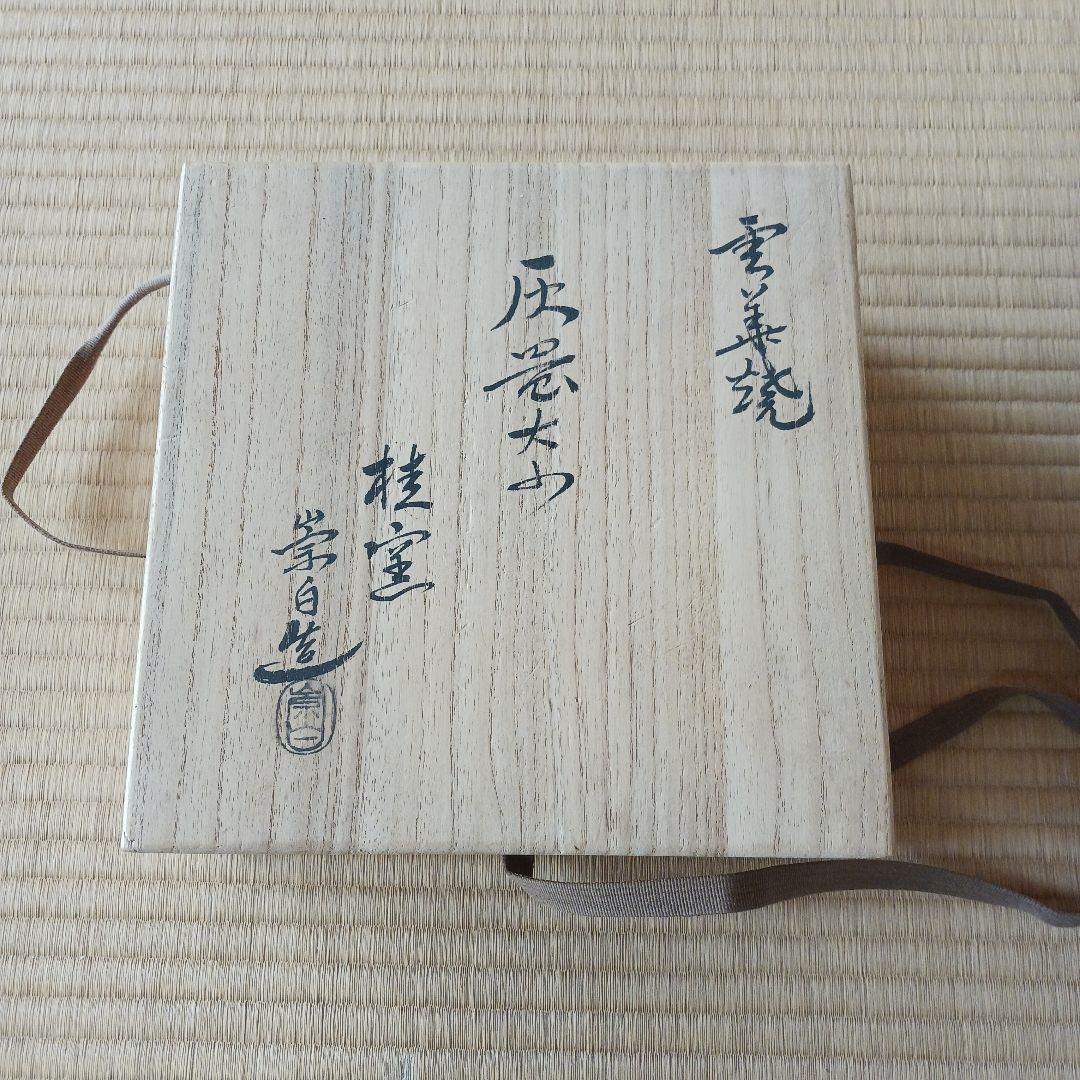 雲華焼
灰器大小
桂窯
崇白造